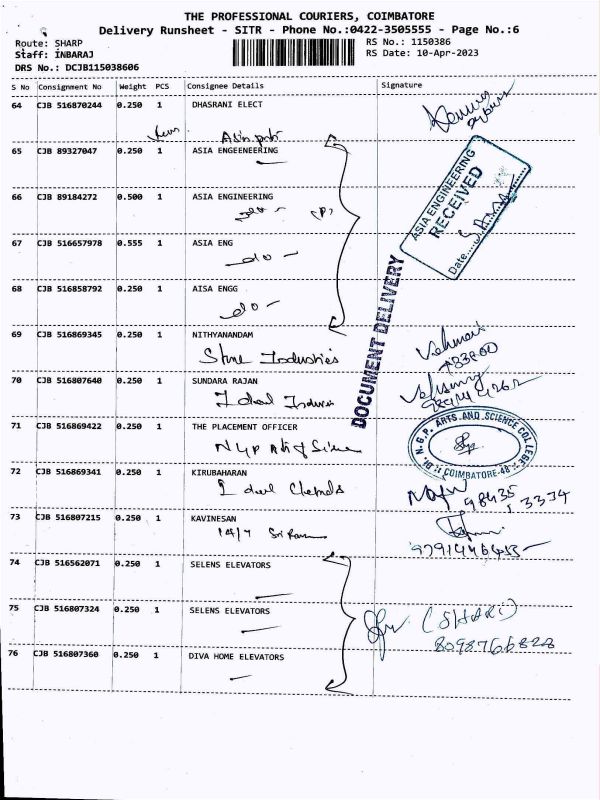 THE PROFESSIONAL COURIERS, COIMBATORE
Delivery Runsheet - SITR - Phone No.:0422-3505555 - Page No.:6
Route: SHARP
Staff: INBARAJ
DRS No.: DCJB115038606
RS No.: 1150386
RS Date: 10-Apr-2023
S No Consignment No Weight PCS Consignee Details Signature
64 CJB 516870244 0.250 1 DHASRANI ELECT
65 CJB 89327047 0.250 1 ASIA ENGEENEERING
66 CJB 89184272 0.500 1 ASIA ENGINEERING
(P)
67 CJB 516657978 0.555 1 ASIA ENG
do
68 CJB 516858792 0.250 1 AISA ENGG
do
ASIA ENGINEERING
RECEIVED
Date.....
DOCUMENT DELIVERY
69 CJB 516869345 0.250 1 NITHYANANDAM
Industries
70 CJB 516807640 0.250 1 SUNDARA RAJAN
Ideal
71 CJB 516869422 0.250 1 THE PLACEMENT OFFICER
DR. N.G.P. ARTS AND SCIENCE COLLEGE
COIMBATORE-48
72 CJB 516869341 0.250 1 KIRUBAHARAN
98435
3334
73 CJB 516807215 0.250 1 KAVINESAN
74 CJB 516562071 0.250 1 SELENS ELEVATORS
75 CJB 516807324 0.250 1 SELENS ELEVATORS
(SHARI)
8098766828
76 CJB 516807360 0.250 1 DIVA HOME ELEVATORS